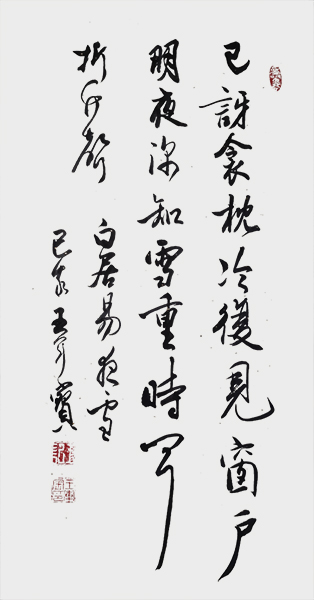 已訝衾枕冷復見窗戶
明夜深知雪重時聞
折竹聲
白居易夜雪